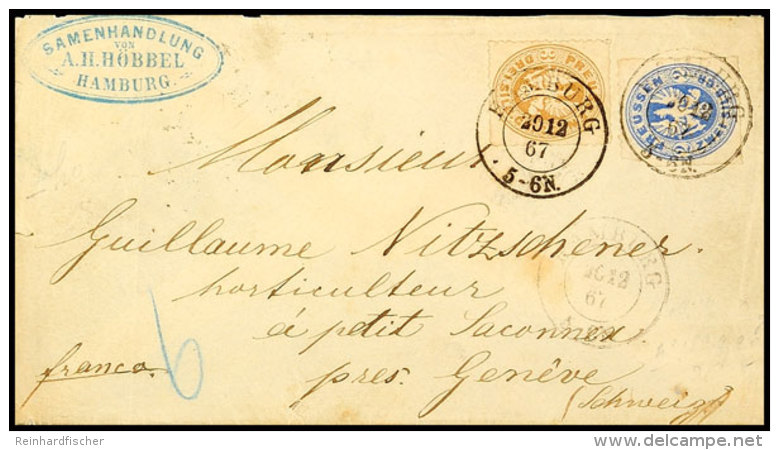 SAMENHANDLUNG
VON
A.H. HÖBBEL
HAMBURG.
PREUSSEN
HAMBURG
2912
67
5-6N.
PREUSSEN
67
5-6N.
Monsieur
Guillaume Nitzschener.
horticulteur
à petit Saconnex
près. Genêve
(Schweiz)
franco.
6
2912
67
Reinhardfischer
delcampe.net